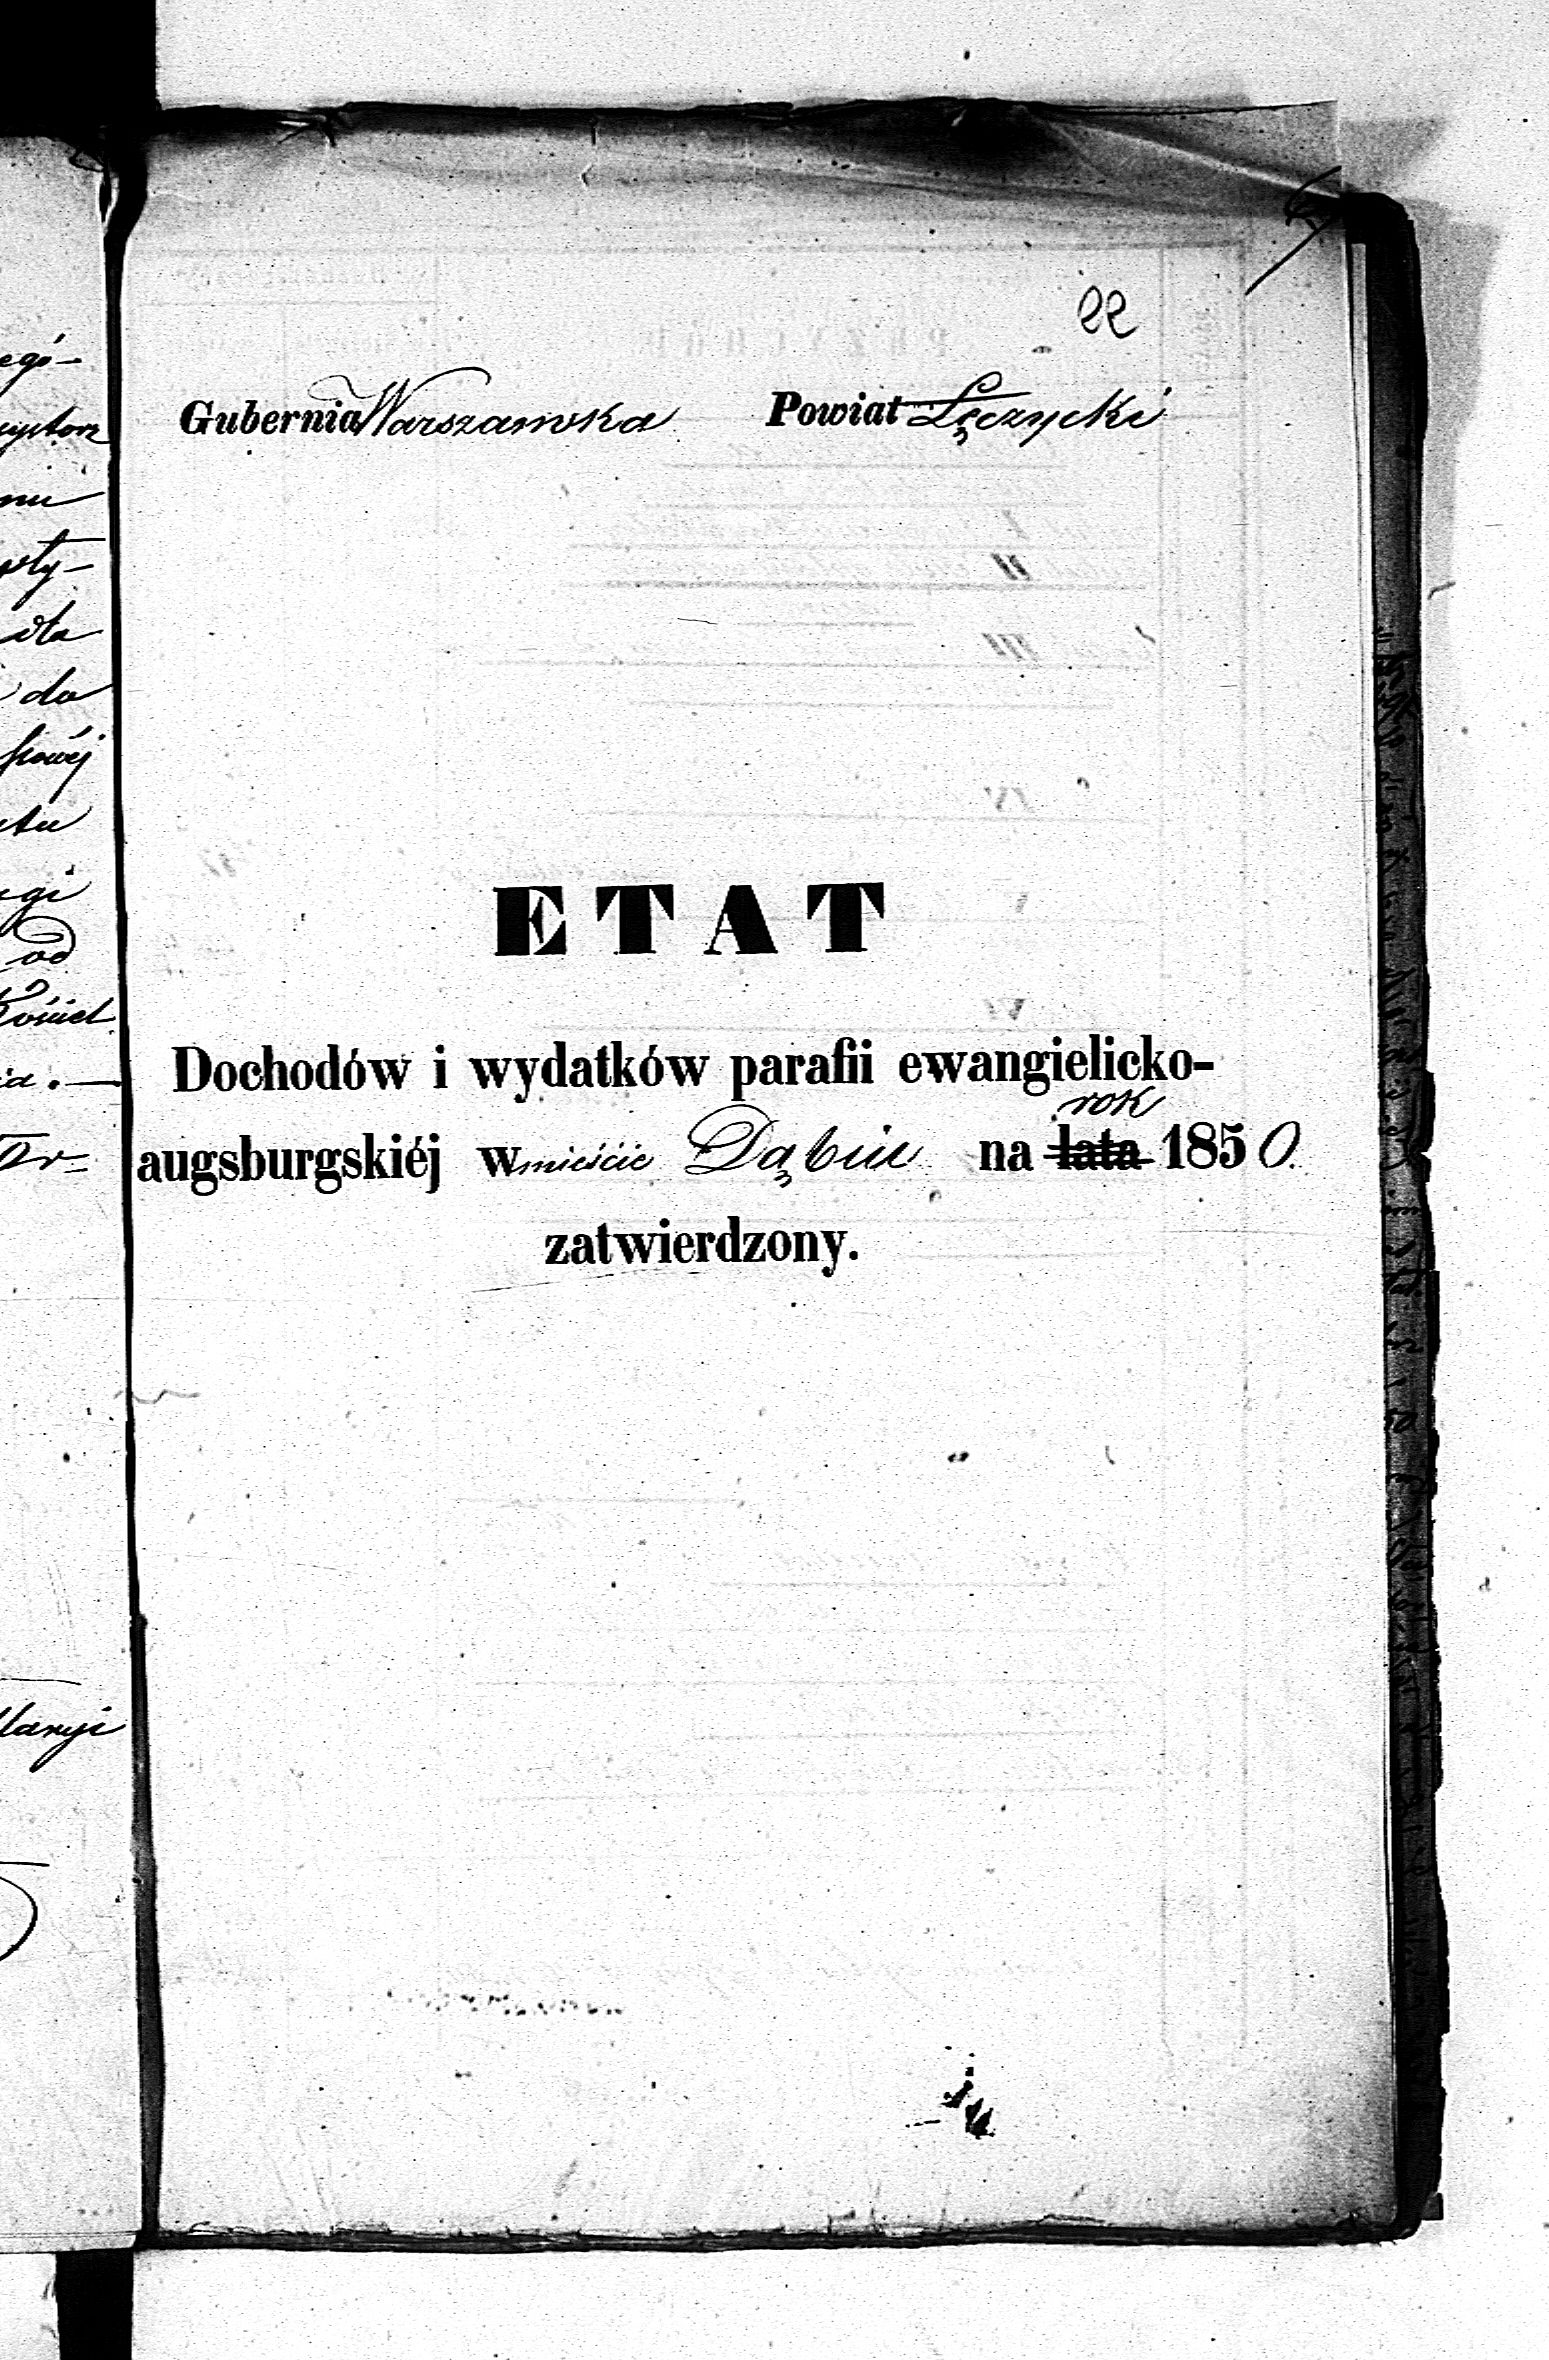 22
Gubernia Warszawska Powiat Łęczycki
ETAT
Dochodów i wydatków parafii ewangielicko-
rok
augsburgskiéj w mieście Dąbiu na lata 1850.
zatwierdzony.
do
od